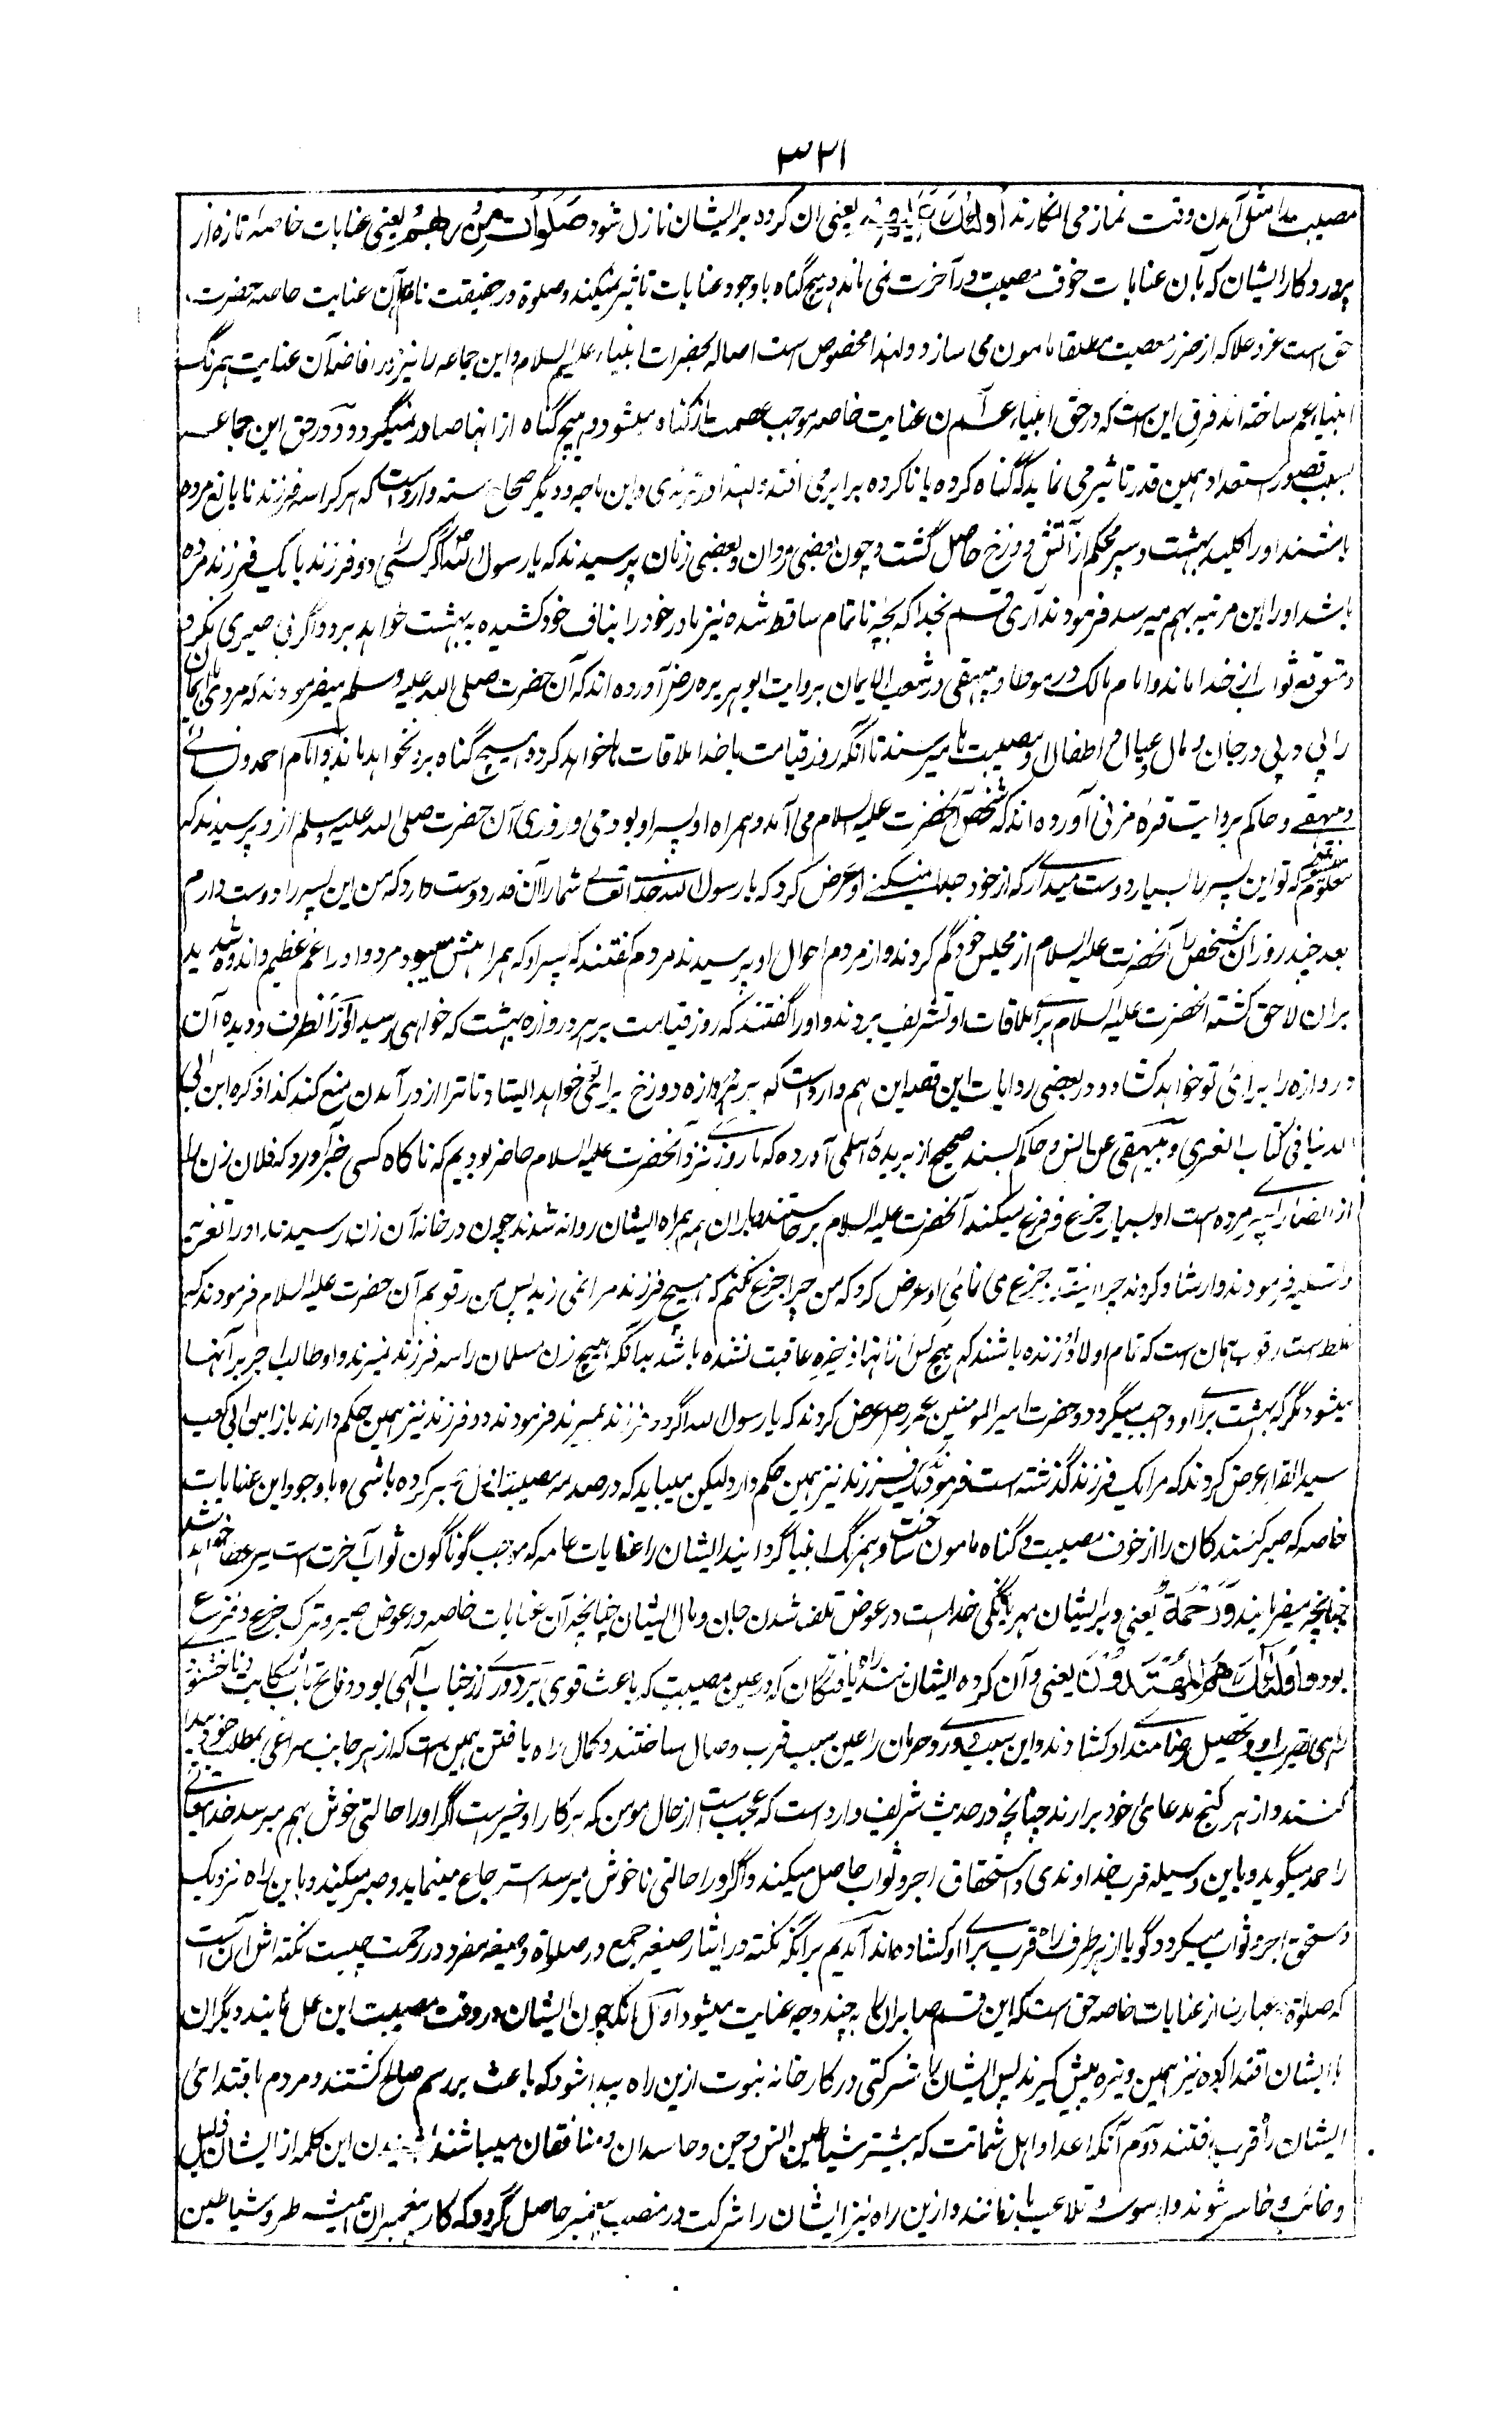 ۳۲۱
مصیبت را مثل آمدن وقت نماز می انگارند أُولَئِكَ عَلَيْهِمْ یعنی ان گروه بر ایشان نازل شود صَلَوَاتٌ مِنْ رَبِّهِمْ یعنی عنایات خاصهٔ تازه از
پروردگار ایشان که بآن عنایات خوف مصیبت در آخرت نمی ماند و هیچ گناه با وجود عنایات تاثیر نمیکند و صلوة در حقیقت نام آن عنایت خاصه حضرت
حق است عز و علا که از ضرر معصیت مطلقا مامون می سازد و لهذا مخصوص است اصالة بحضرات انبیاء علیهم السلام و این جماعه را نیز در افاضه آن عنایت همرنگ
انبیاء عم ساخته اند فرق این است که در حق انبیاء عم آن عنایت خاصه موجب عصمت از گناه میشود و هیچ گناه از انها صادر نمیگردد و در حق این جماعه
بسبب قصور استعداد همین قدر تاثیر می نماید که گناه کرده یا ناکرده برابر می افتد و لهذا در ترمذی و ابن ماجه و دیگر صحاح سته وارد است که هر کرا سه فرزند نابالغ مرده
باشند او را کلید بهشت و سپر محکم از آتش دوزخ حاصل گشت و چون بعضی مردان و بعضی زنان پرسیدند که یا رسول الله اگر کسی را دو فرزند یا یک فرزند مرده
باشد او را این مرتبه بهم میرسد فرمودند آری قسم بخدا که بچهٔ ناتمام ساقط شده نیز مادر خود را بناف خود کشیده به بهشت خواهد برد و اگر بی صبری نکرد
و متوقع ثواب از خدا ماند و امام مالک در موطا و بیهقی در شعب الایمان بروایت ابو هریره رض آورده اند که آن حضرت صلی الله علیه وسلم میفرمودند که مردی با ایمان
را پی در پی در جان و مال و عیال و اطفال او مصیبت ها میرسند تا آنکه روز قیامت با خدا ملاقات خواهد کرد و هیچ گناه برو نخواهد ماند و امام احمد و نسائی
و بیهقی و حاکم بروایت قره مزنی آورده اند که شخصی بآنحضرت علیه السلام می آمد و همراه او پسر او بود می روزی آن حضرت صلی الله علیه وسلم ازو پرسیدند که
معلوم میشود که تو این پسر را بسیار دوست میداری که از خود جدا نمیکنی او عرض کرد که یا رسول الله خدا تعالی شما را آن قدر دوست دارد که من این پسر را دوست دارم
بعد چند روز آن شخص را آنحضرت علیه السلام از مجلس خود گم کردند و از مردم احوال او پرسیدند مردم گفتند که پسر او که همراهش میبود مرد و او را غم عظیم و اندوه شدید
بران لاحق گشته آنحضرت علیه السلام برای ملاقات او تشریف بردند و او را گفتند که روز قیامت بر هر دروازه بهشت که خواهی رسید او از انطرف دویده آن
دروازه را برای تو خواهد کشاد و در بعضی روایات این قصه این هم وارد است که بر هر دروازه دوزخ برای تو خواهد ایستاد تا ترا از در آمدن منع کند کذا ذکره ابن ابی
الدنیا فی کتاب العزی و بیهقی عن انس و حاکم بسند صحیح از بریدهٔ اسلمی آورده که ما روزی نزد آنحضرت علیه السلام حاضر بودیم که ناگاه کسی خبر آورد که فلان زن را
از انصار پسر مرده است او بسیار جزع و فزع میکند آنحضرت علیه السلام برخاستند و یاران همه همراه ایشان روانه شدند چون در خانه آن زن رسیدند او را تعزیة
و تسلیه فرمودند و ارشاد کردند چرا اینقدر جزع می نمائی او عرض کرد که من چرا جزع نکنم که هیچ فرزند مرا نمی زید پس من رقوبم آن حضرت علیه السلام فرمودند که
غلط است رقوب همان است که تمام اولاد او زنده باشند که هیچ کس از انها ذخیره عاقبت نشده باشد بدانکه هیچ زن مسلمان را سه فرزند نمیرند و او طالب اجر بر آنها
میشود مگر که بهشت برای او واجب میگردد و حضرت امیر المومنین عمر رض عرض کردند که یا رسول الله اگر دو فرزند بمیرند فرمودند دو فرزند نیز همین حکم دارند باز ابی بن کعب
سید القراء عرض کردند که مرا یک فرزند گذشته است فرمودند یک فرزند نیز همین حکم دارد لیکن میباید که در صدمه مصیبت اول صبر کرده باشی و با وجود این عنایات
خاصه که صبر کنندگان را از خوف مصیبت و گناه مامون ساخت و همرنگ انبیا گردانید ایشان را عنایات عامه که موجب گوناگون ثواب آخرت است میسر خواهد شد
چنانچه میفرمایند وَرَحْمَةٌ یعنی و بر ایشان مهربانگی خداست در عوض تلف شدن جان و مال ایشان چنانچه آن عنایات خاصه در عوض صبر و ترک جزع و فزع
بود و أُولَئِكَ هُمُ الْمُهْتَدُونَ یعنی و آن گروه ایشانند راه یافتگان که در عین مصیبت که باعث قوی بر دوری از جناب الهی بود و فاتح باب شکایت و ناخشنودی
راهی بقرب او و تحصیل رضامندی او کشادند و این سبب دوری و حرمان را عین سبب قرب و وصال ساختند و کمال راه یافتن همین است که از هر جانب سراغی بمطلب خود پیدا
کنند و از هر کنج مدعای خود برارند چنانچه در حدیث شریف وارد است که عجب است از حال مومن که هر کار او خیر است اگر او را حالتی خوش بهم میرسد خدا تعالی
را حمد میگوید و باین وسیله قرب خداوندی و استحقاق اجر و ثواب حاصل میکند و اگر او را حالتی ناخوش میرسد استرجاع مینماید و صبر میکند و باین راه نزدیک
و مستحق اجر و ثواب میگردد گویا از هر طرف راه قرب برای او کشاده اند آمدیم برانکه نکته در ایثار صیغه جمع در صلواة و صیغه مفرد در رحمت چیست نکته اش آن است
که صلوة عبارت از عنایات خاصه حق است که این قسم صابران را به چند وجه عنایت میشود اول آنکه چون ایشان در وقت مصیبت این عمل نمایند دیگران
با ایشان اقتدا کرده نیز همین وتیره پیش گیرند پس ایشان را شرکتی در کارخانه نبوت ازین راه پیدا شود که باعث بر رسم صالح گشتند و مردم باقتدای
ایشان راه قرب یافتند دوم آنکه اعدا و اهل شماتت که بیشتر شیاطین انس و جن و حاسدان و منافقان میباشند بشنیدن این کلمه از ایشان ذلیل
و خائب و خاسر شوند و از وسوسه و تلاعب باز مانند و ازین راه نیز ایشان را شرکت در منصب پیغمبر حاصل گردد که کار پیغمبران همیشه طرد شیاطین